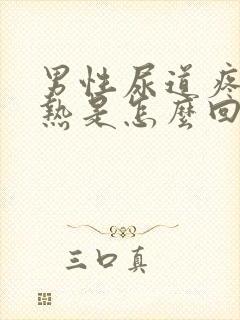 男性尿道疼
热是怎麽回
三口真